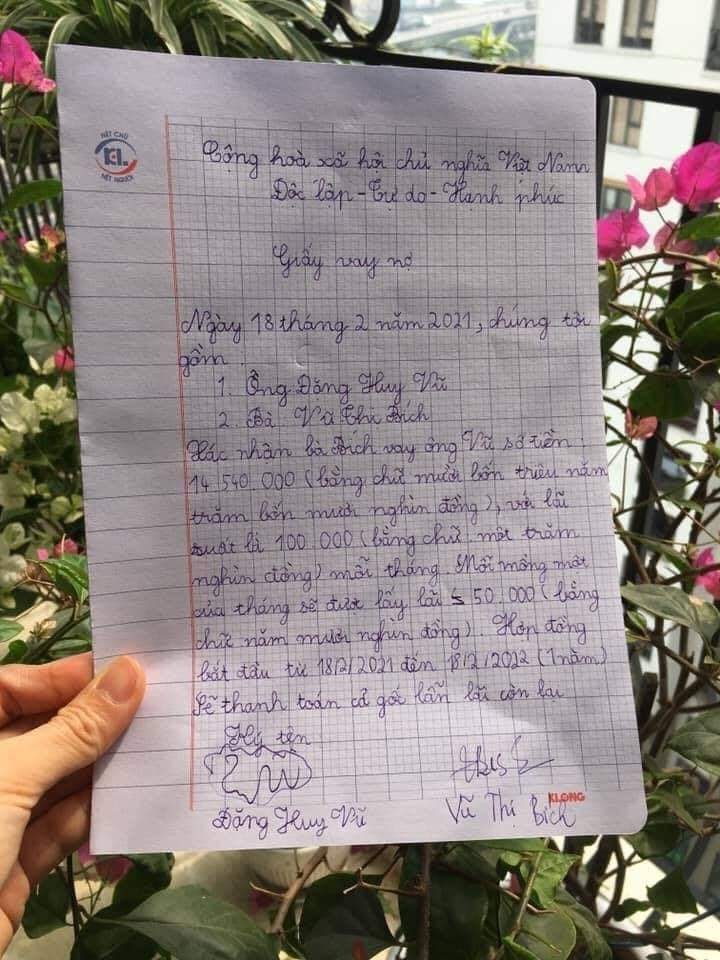 NÉT CHỮ
KL
NẾT NGƯỜI
Cộng hoà xã hội chủ nghĩa Việt Nam
Độc lập - Tự do - Hạnh phúc
Giấy vay nợ
Ngày 18 tháng 2 năm 2021, chúng tôi
gồm:
1. Ông Đặng Huy Vũ
2. Bà Vũ Thị Bích
Xác nhận bà Bích vay ông Vũ số tiền
14 540 000 (bằng chữ mười bốn triệu năm
trăm bốn mươi nghìn đồng), với lãi
suất là 100.000 (bằng chữ: một trăm
nghìn đồng) mỗi tháng. Mỗi mồng một
của tháng sẽ được lấy lãi 50.000 (bằng
chữ năm mươi nghìn đồng). Hợp đồng
bắt đầu từ 18/2/2021 đến 18/2/2022 (1 năm)
Sẽ thanh toán cả gốc lẫn lãi còn lại
Ký tên
Đặng Huy Vũ
Vũ Thị Bích
KLONG